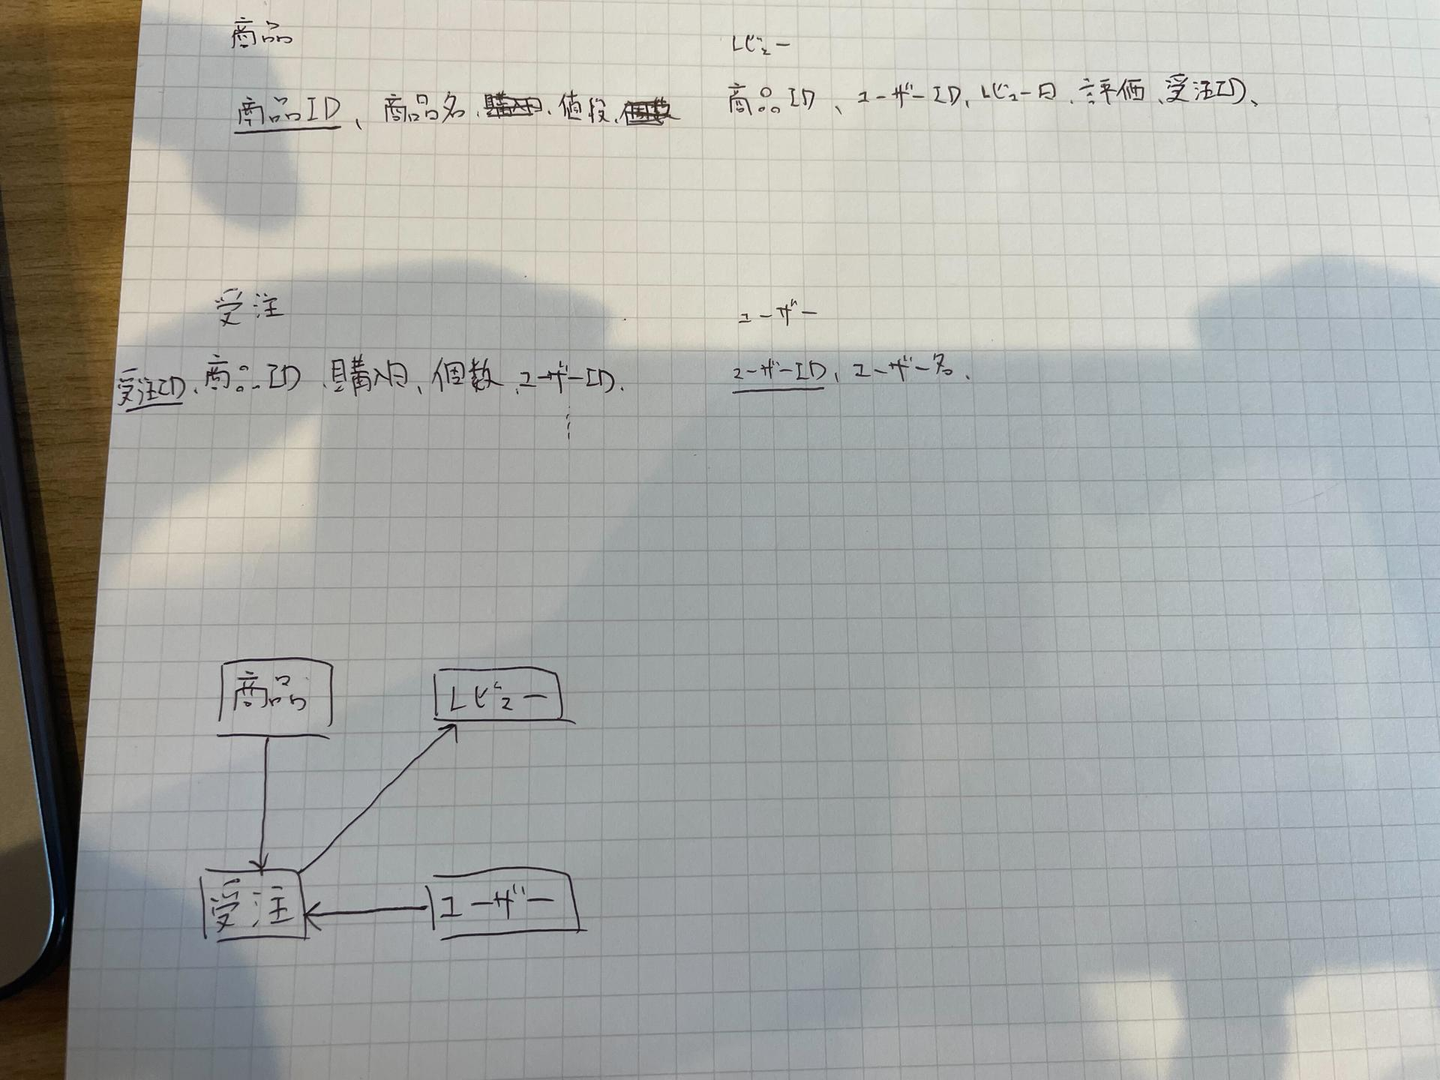 商品
商品ID、商品名、値段、
レビュー
商品ID、ユーザーID、レビュー日、評価、受注ID、
受注
受注ID、商品ID、購入日、個数、ユーザーID.
ユーザー
ユーザーID、ユーザー名.
商品
レビュー
受注
ユーザー